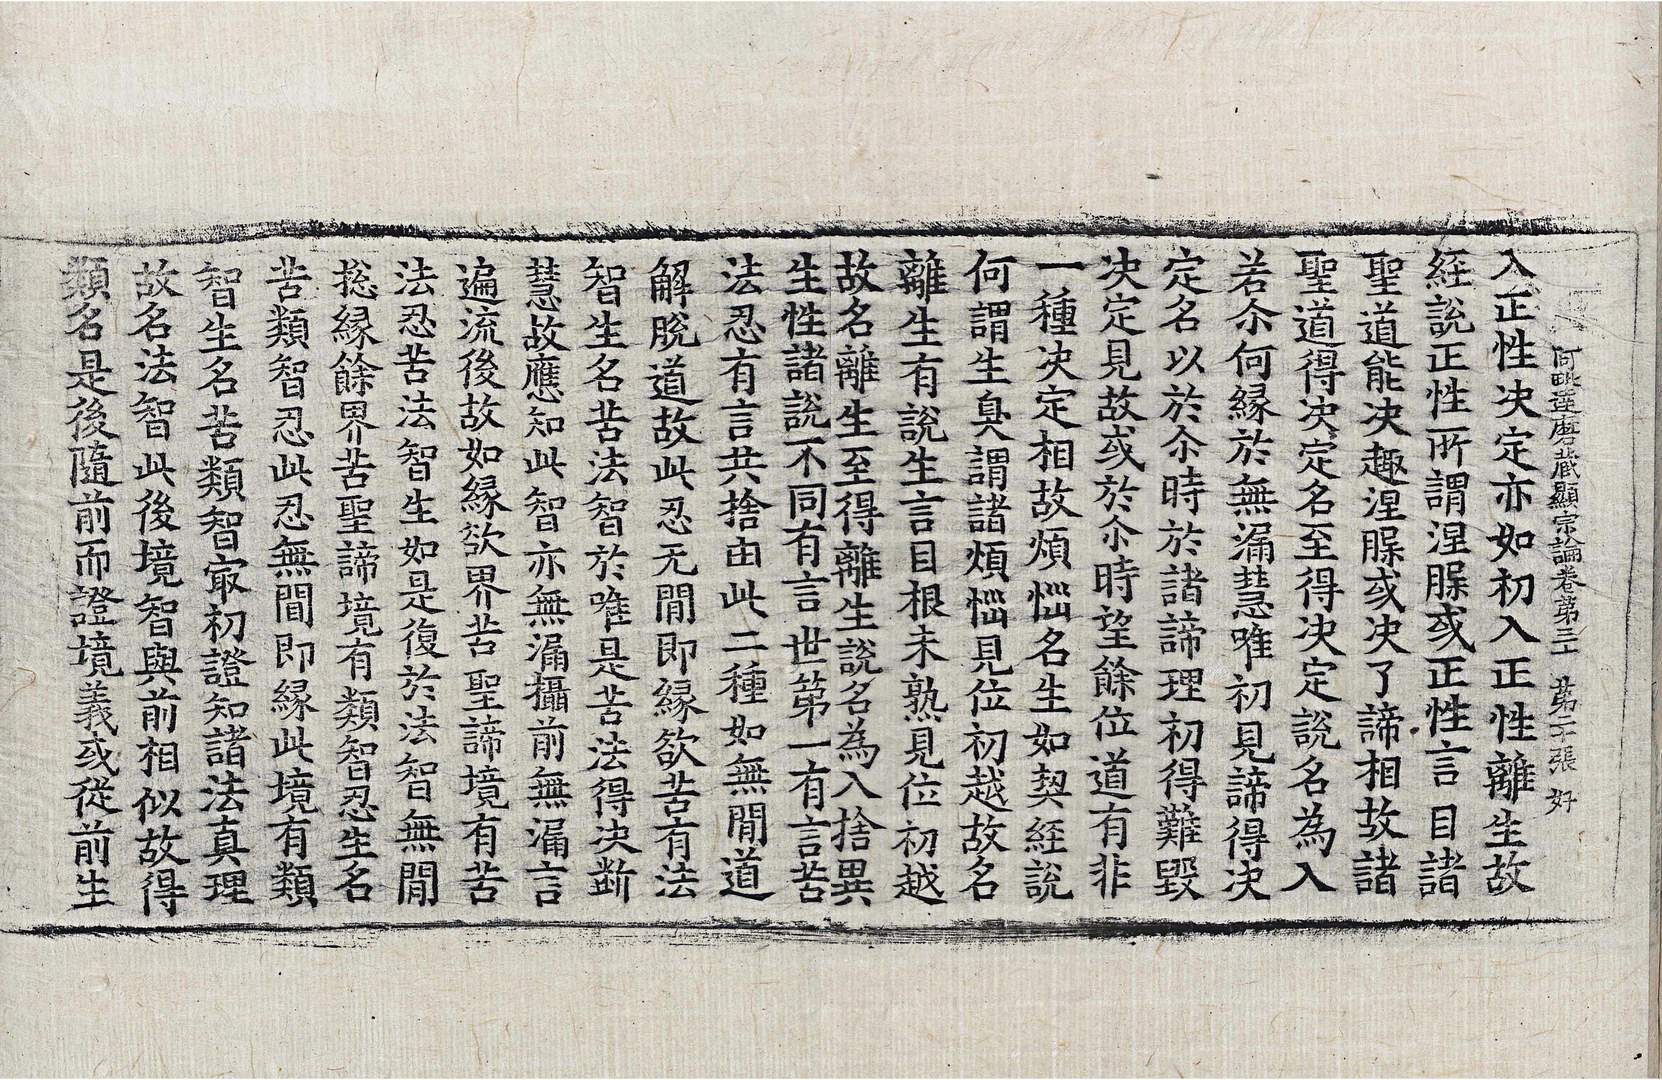 阿毗達磨藏顯宗論卷第三十 第二十張 好
入正性决定亦如初入正性離生故
経說正性所謂涅䏶或正性言目諸
聖道能决趣涅䏶或决了諦相故諸
聖道得决定名至得决定說名為入
若尒何縁於無漏慧唯初見諦得决
定名以於尒時於諸諦理初得難毀
决定見故或於尒時望餘位道有非
一種决定相故煩惱名生如契経說
何謂生臭謂諸煩惱見位初越故名
離生有說生言目根未熟見位初越
故名離生至得離生說名為入捨異
生性諸說不同有言世第一有言苦
法忍有言共捨由此二種如無閒道
解脫道故此忍无閒即縁欲苦有法
智生名苦法智於唯是苦法得决斷
慧故應知此智亦無漏攝前無漏言
遍流後故如縁欲界苦聖諦境有苦
法忍苦法智生如是復於法智無閒
捴縁餘界苦聖諦境有類智忍生名
苦類智忍此忍無間即縁此境有類
智生名苦類智㝡初證知諸法真理
故名法智此後境智與前相似故得
類名是後隨前而證境義或從前生